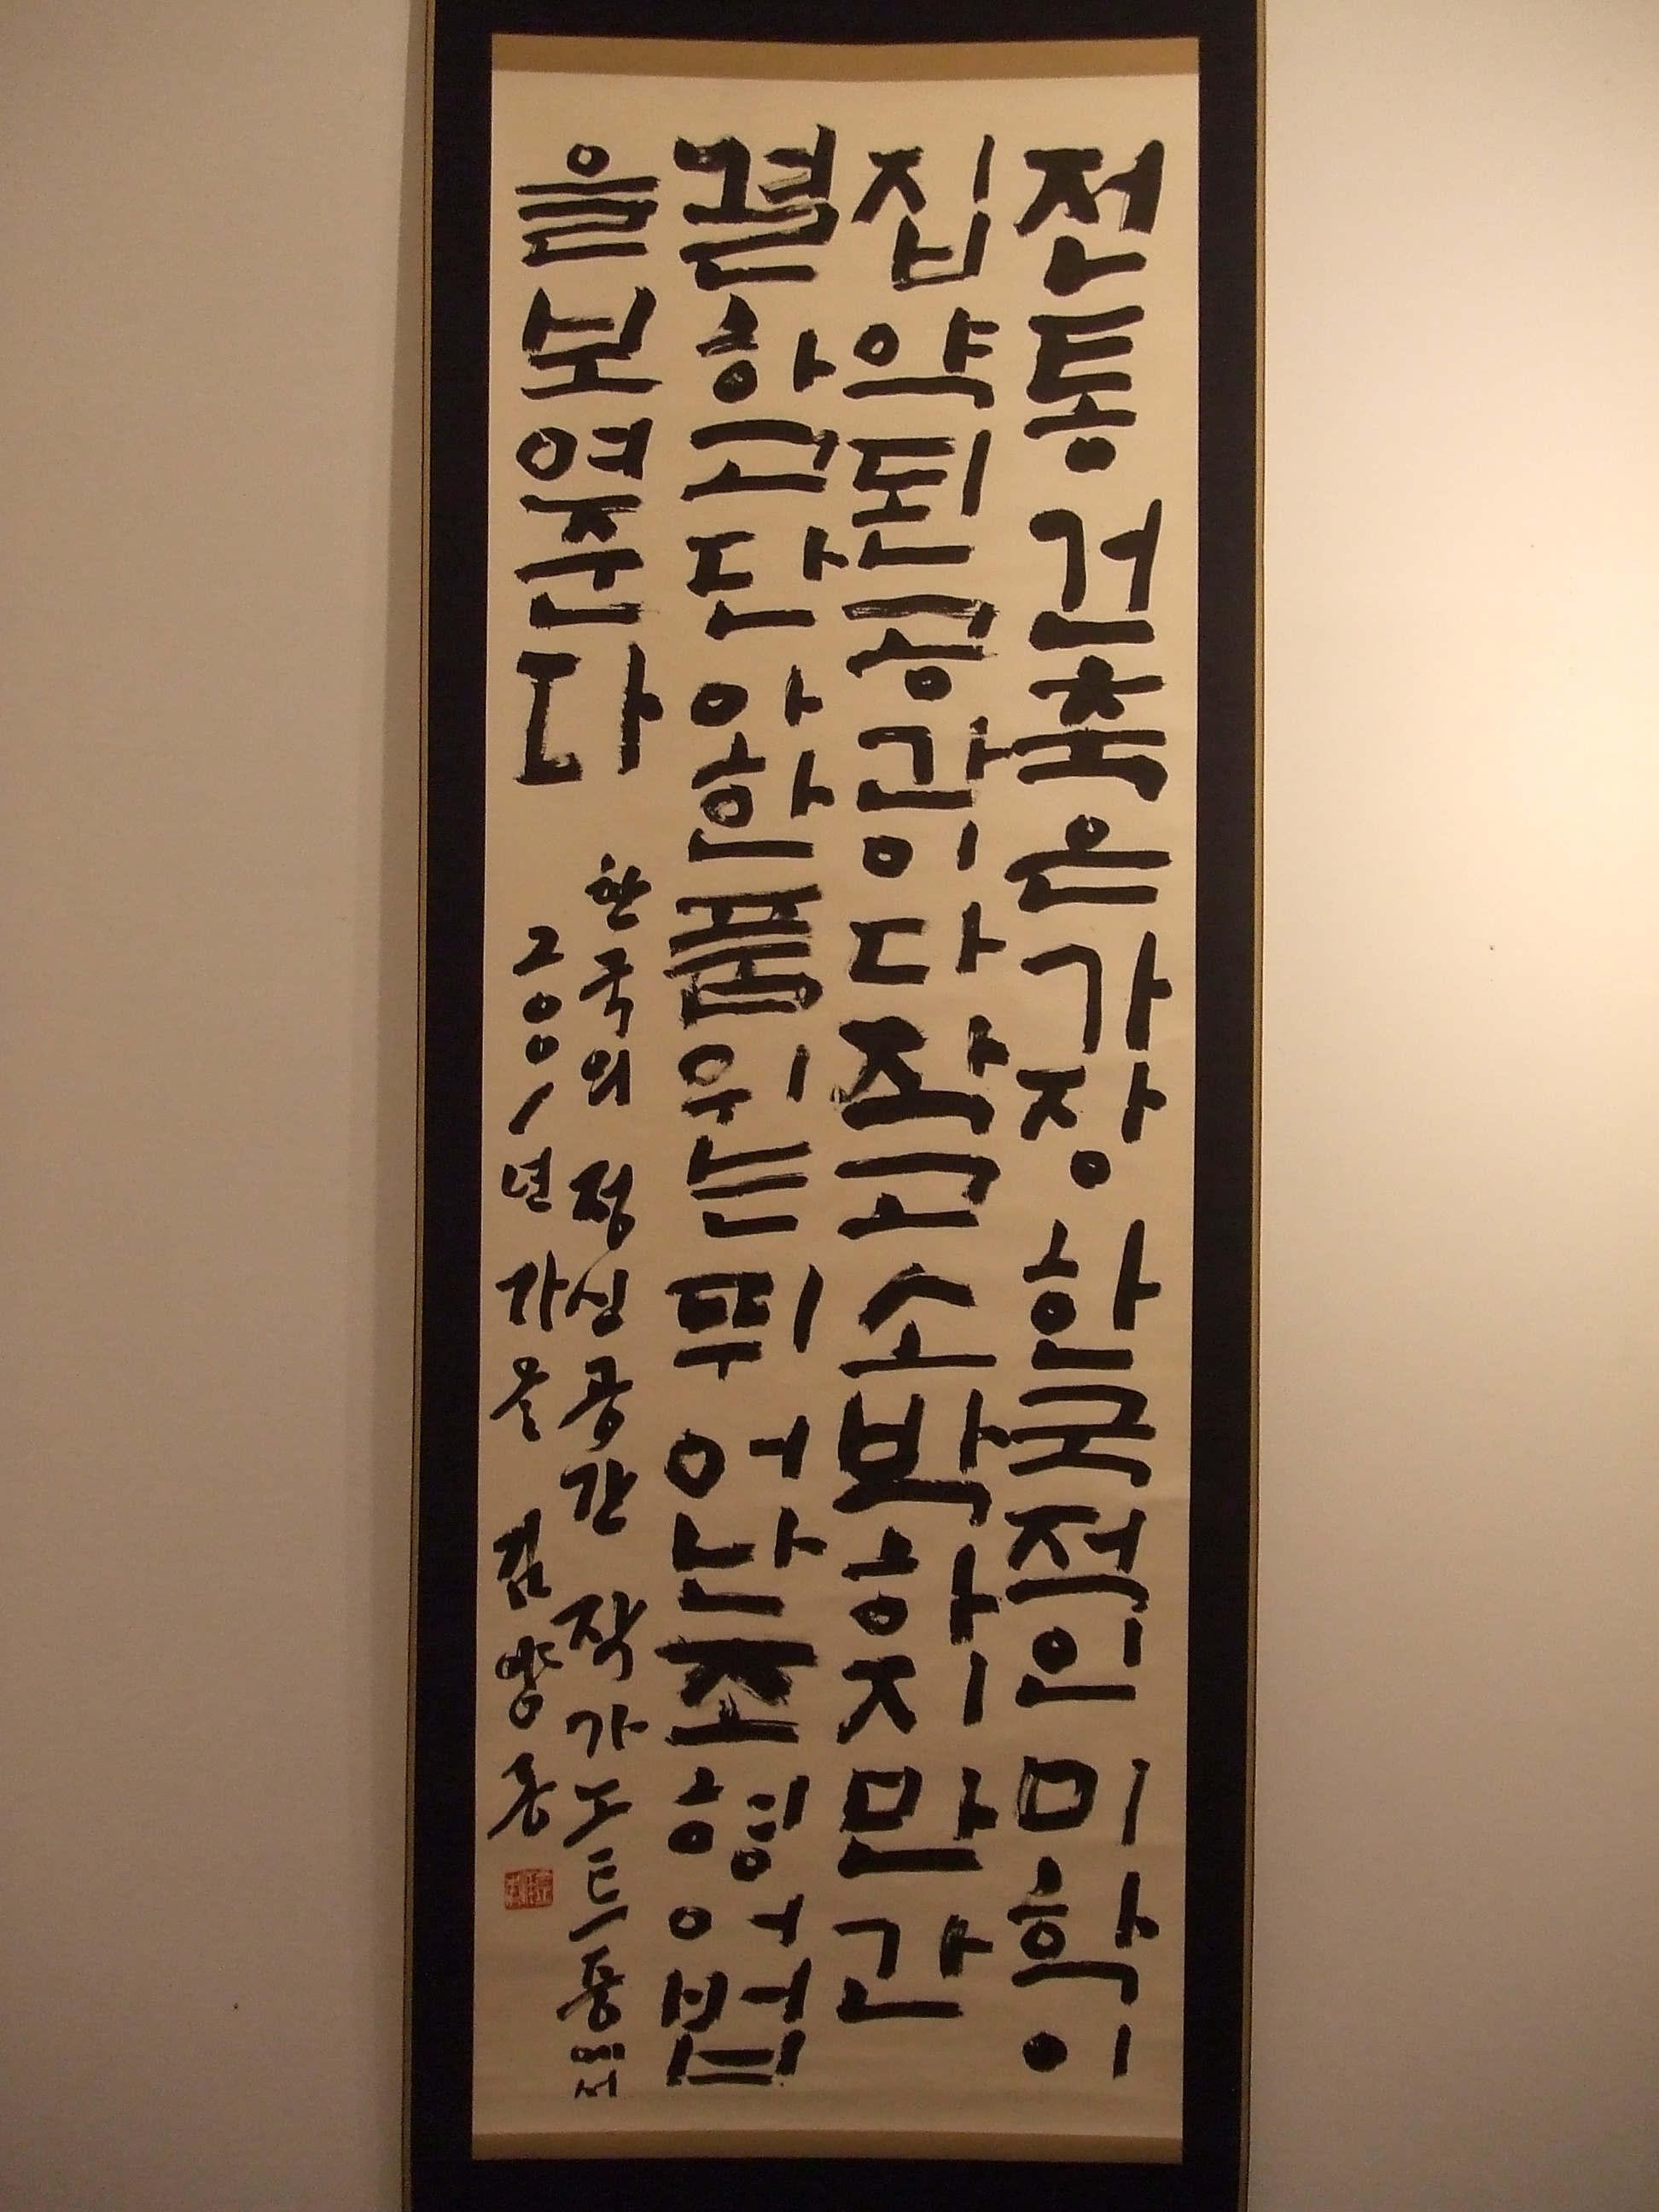 전통 건축은 가장 한국적인 미학이
집약된 공간이다 작고 소박하지만 간
결하고 단아한 품위는 뛰어난 조형어법
을 보여준다
한국의 정신공간 작가노트 중에서
2001년 가을 김양동